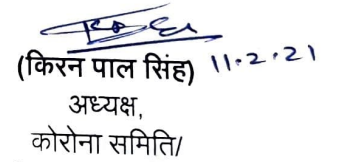 (किरन पाल सिंह) 11.2.21
अध्यक्ष,
कोरोना समिति/